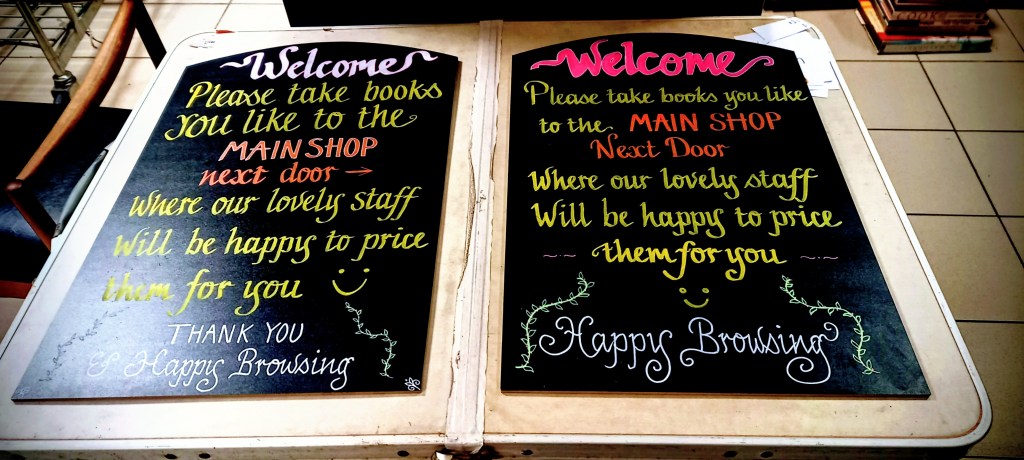 Welcome
Please take books
you like to the
MAIN SHOP
next door →
Where our lovely staff
Will be happy to price
them for you
THANK YOU
& Happy Browsing
Welcome
Please take books you like
to the MAIN SHOP
Next Door
Where our lovely staff
Will be happy to price
~·~ them for you ~·~
Happy Browsing